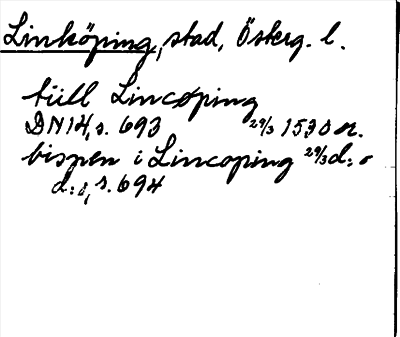 Linköping, stad, Österg. l.
tiill Lincøping
DN14, s. 693 29/3 1530 or.
bispen i Lincoping 29/3 d:o
d:o, s. 694